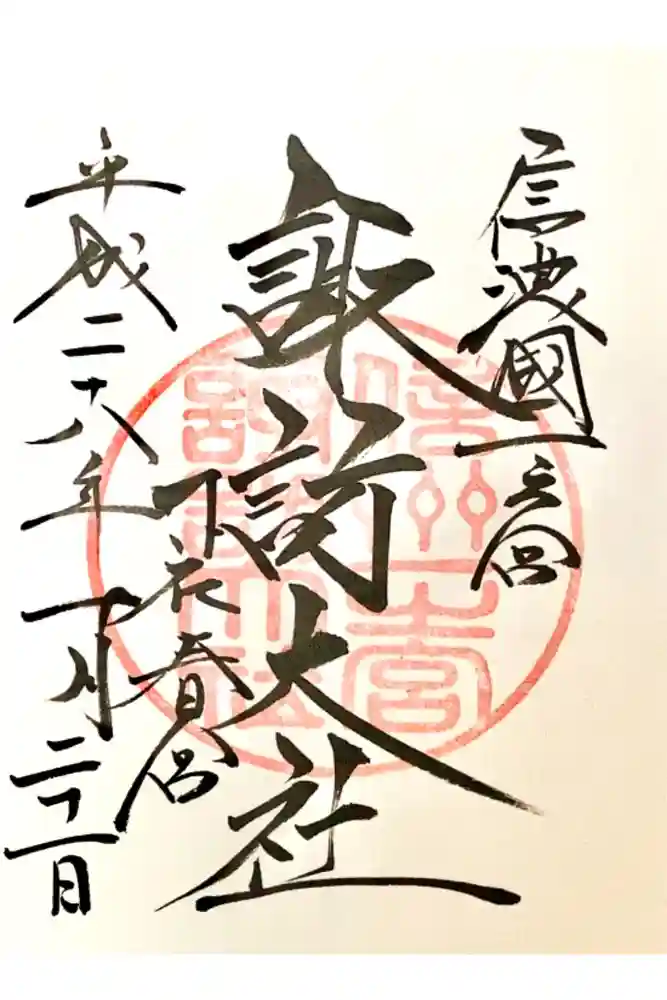 信濃國一之宮
諏訪大社
下社春宮
平成二十八年 月二十一日
信州一宮
諏訪大社